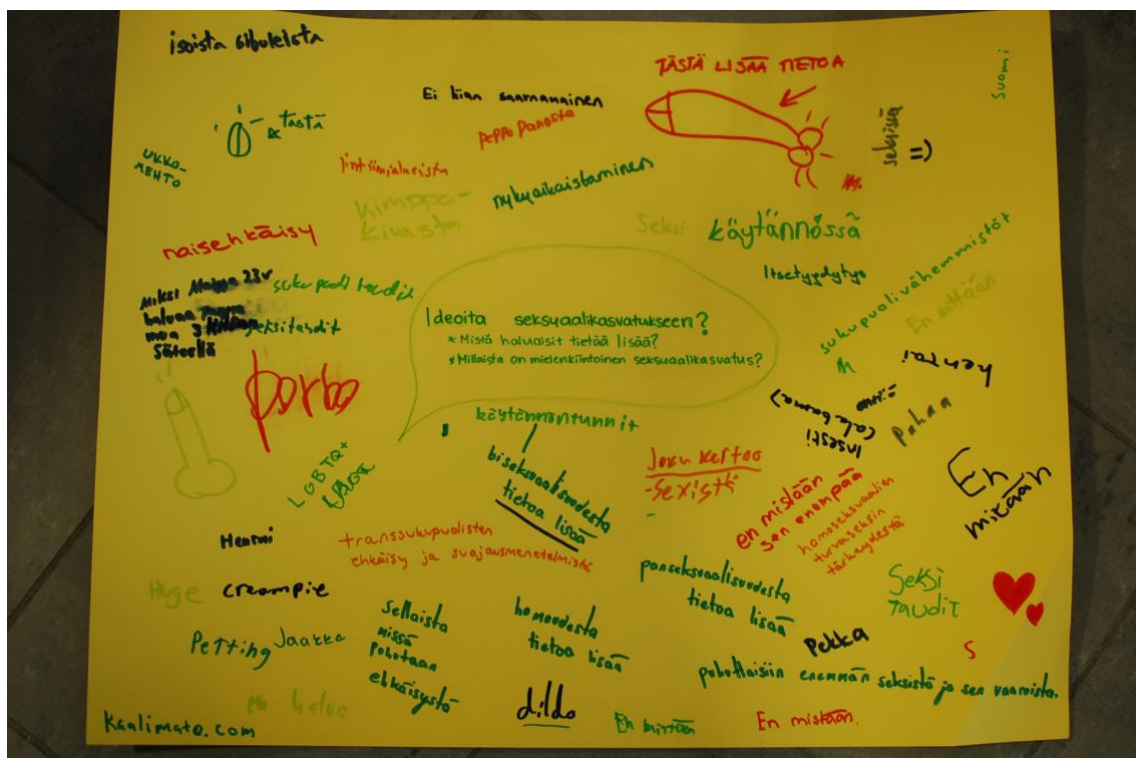 isoista
TÄSTÄ LISÄÄ TIETOA
Suomi
Ei liian saarnamainen
Tästä
Peppo Panosta
seksistä
=)
UKKO-
MEHTO
nykyaikaistaminen
Kimppa-
kivasta
naisehkäisy
Seksi
käytännössä
Itsetyydytys
sukupuolivähemmistöt
Miksi 23v
haluaa
mua 3
Säteellä
seksitaudit
En mittään
Ideoita seksuaalikasvatukseen?
* Mistä haluaisit tietää lisää?
* Millaista on mielenkiintoinen seksuaalikasvatus?
hentai
porno
käytännöntunnit
Insesti
(alabama)
pahaa
LGBTQ+
biseksuaalisuudesta
tietoa lisää
Joku kertoo
-Sexistä
en mistään
sen enempää
homoseksuaalien
turvaseksin
tärkeydestä
En
mitään
Henrni
transsukupuolisten
ehkäisy ja suojausmenetelmistä
panseksuaalisuudesta
tietoa lisää
Seksi
taudit
Huge
creampie
Petting
Jaakko
Sellaista
missä
puhutaan
ehkäisystä
homoudesta
tietoa lisää
Pekka
S
puhuttaisiin enemmän seksistä ja sen vaaroista.
en halua
dildo
En mistään.
Kaalimato.com